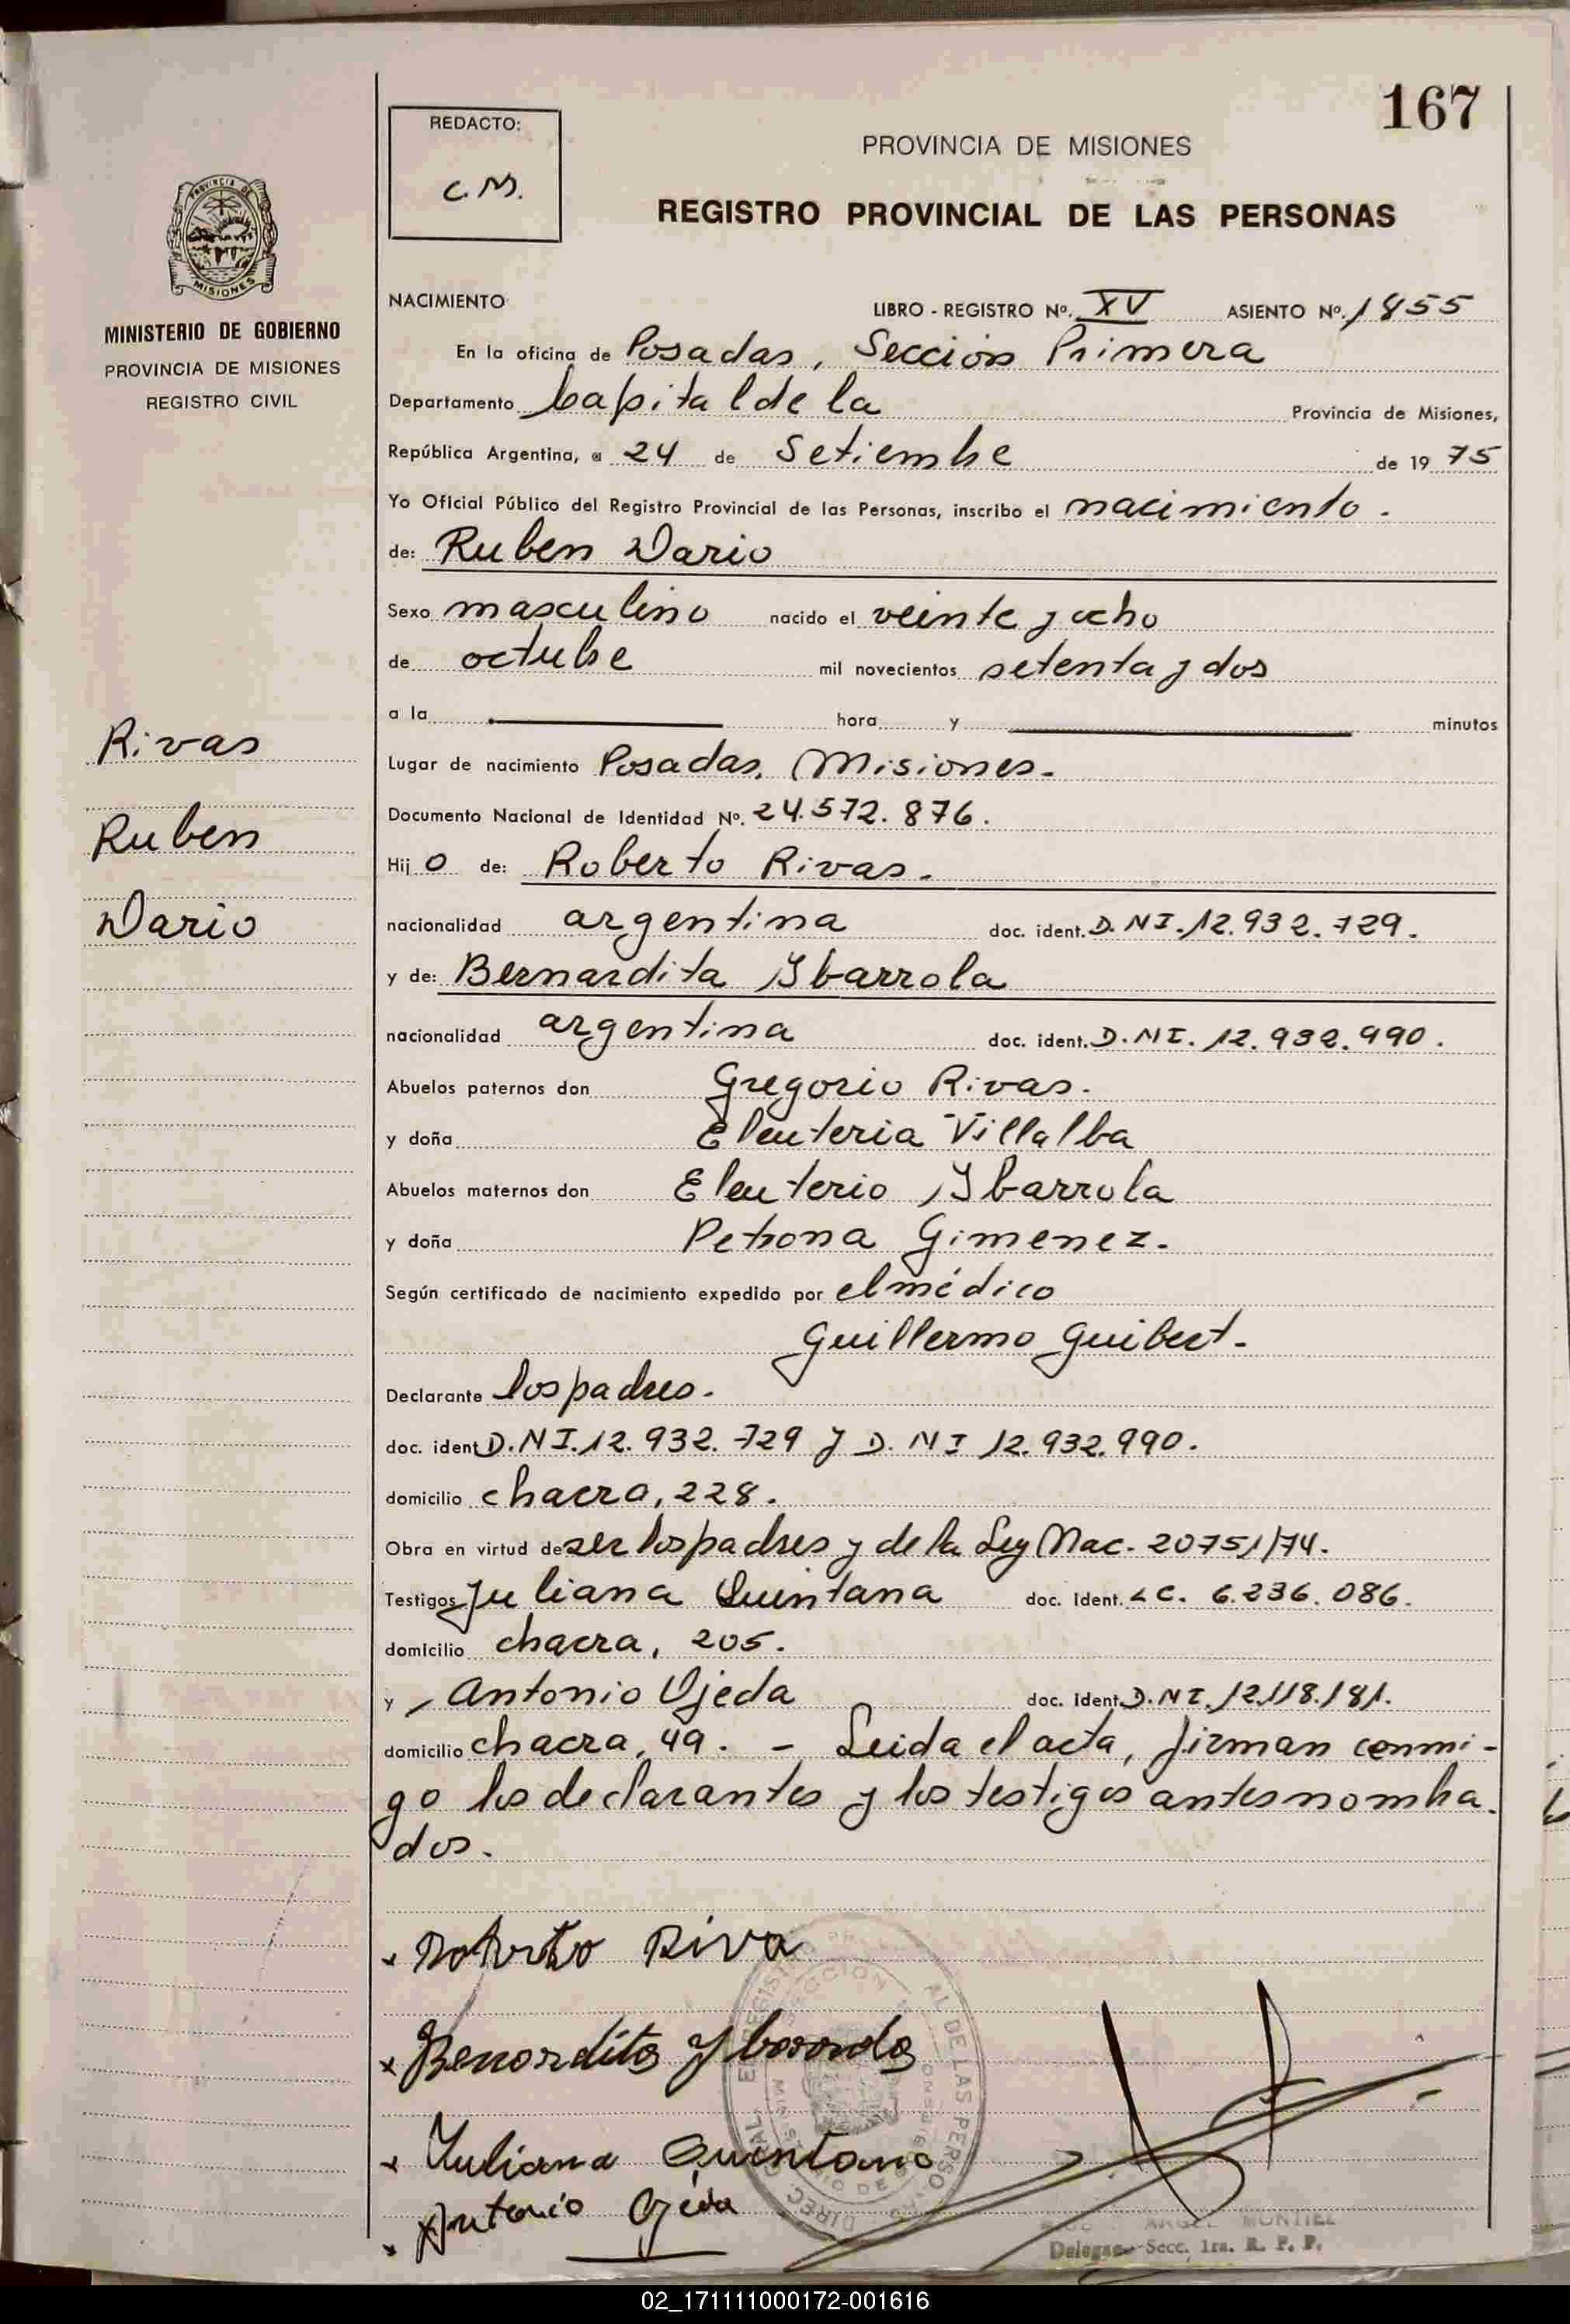 167
REDACTO:
C.M.
PROVINCIA DE MISIONES
REGISTRO PROVINCIAL DE LAS PERSONAS
PROVINCIA DE
MISIONES
MINISTERIO DE GOBIERNO
PROVINCIA DE MISIONES
REGISTRO CIVIL
Rivas
Ruben
Dario
NACIMIENTO LIBRO - REGISTRO Nº. XV ASIENTO Nº. 1855
En la oficina de Posadas, Sección Primera
Departamento Capital de la Provincia de Misiones,
República Argentina, a 24 de Setiembre de 19 75
Yo Oficial Público del Registro Provincial de las Personas, inscribo el nacimiento.
de: Ruben Dario
Sexo masculino nacido el veinte y ocho
de octubre mil novecientos setenta y dos
a la hora y minutos
Lugar de nacimiento Posadas, Misiones.
Documento Nacional de Identidad Nº. 24.572.876.
Hij o de: Roberto Rivas.
nacionalidad argentina doc. ident. D.NI. 12.932.729.
y de: Bernardita Ybarrola
nacionalidad argentina doc. ident. D.NI. 12.932.990.
Abuelos paternos don Gregorio Rivas.
y doña Eleuteria Villalba
Abuelos maternos don Eleuterio Ybarrola
y doña Petrona Gimenez.
Según certificado de nacimiento expedido por el médico
Guillermo Guibert.
Declarante los padres.
doc. ident D.NI. 12.932.729 y D.NI 12.932.990.
domicilio chacra, 228.
Obra en virtud de ser los padres y de la Ley Nac. 20751/74.
Testigos Juliana Quintana doc. ident. LC. 6.236.086.
domicilio chacra, 205.
y Antonio Ojeda doc. ident. D.NI. 12.118.181.
domicilio chacra, 49. - Leida el acta, firman conmi-
go los declarantes y los testigos antes nombra
dos.
Roberto Riva
Benardita Ybarrola
Yuliana Quintana
Antonio Ojeda
ANGEL MONTIEL
Delegado Secc. 1ra. R. P. P.
02_171111000172-001616